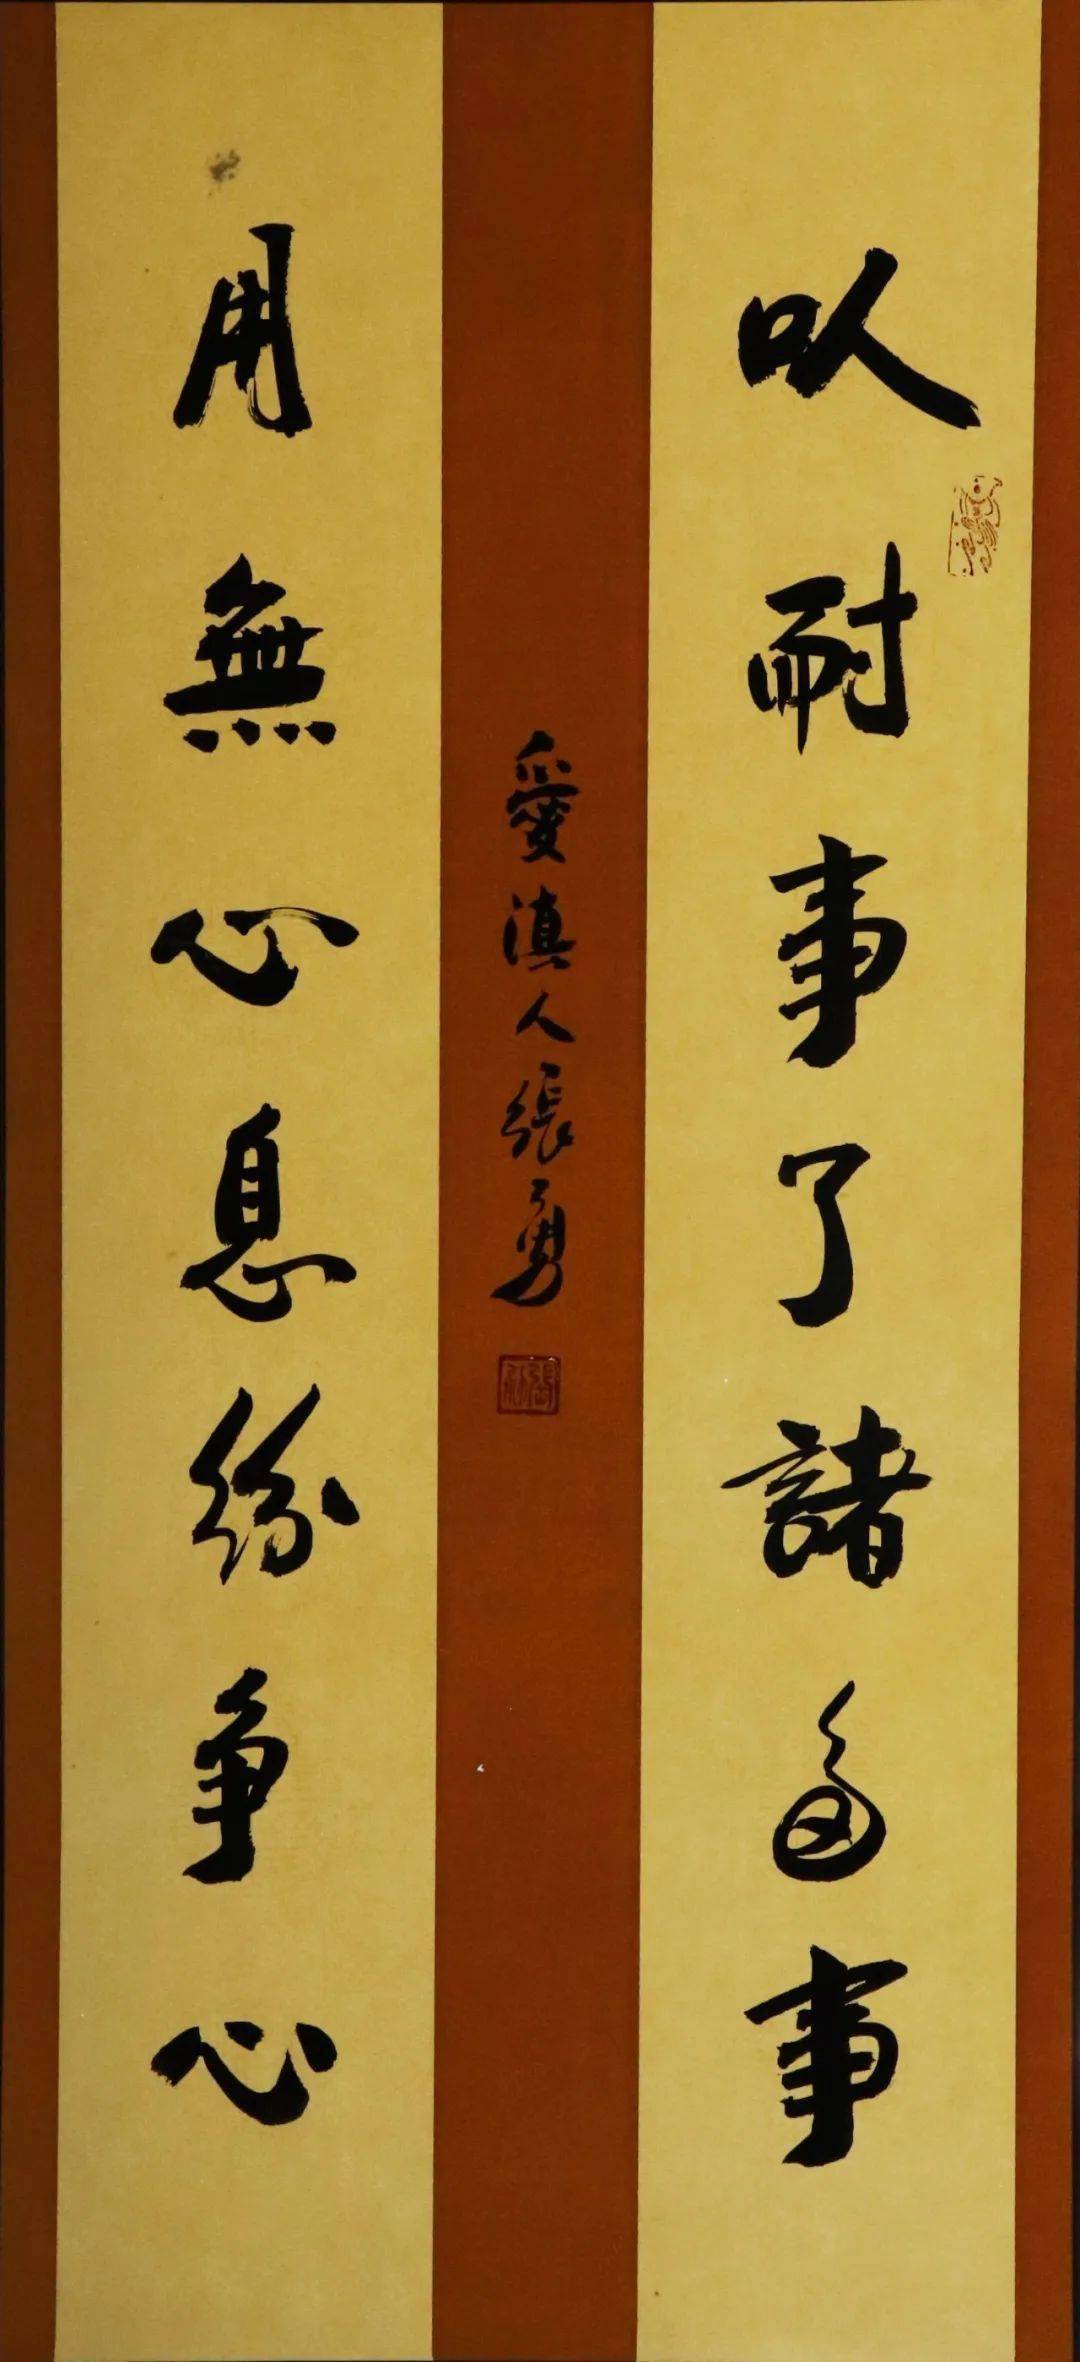 以耐事了諸多事
用無心息紛争心
愛滇人張勇